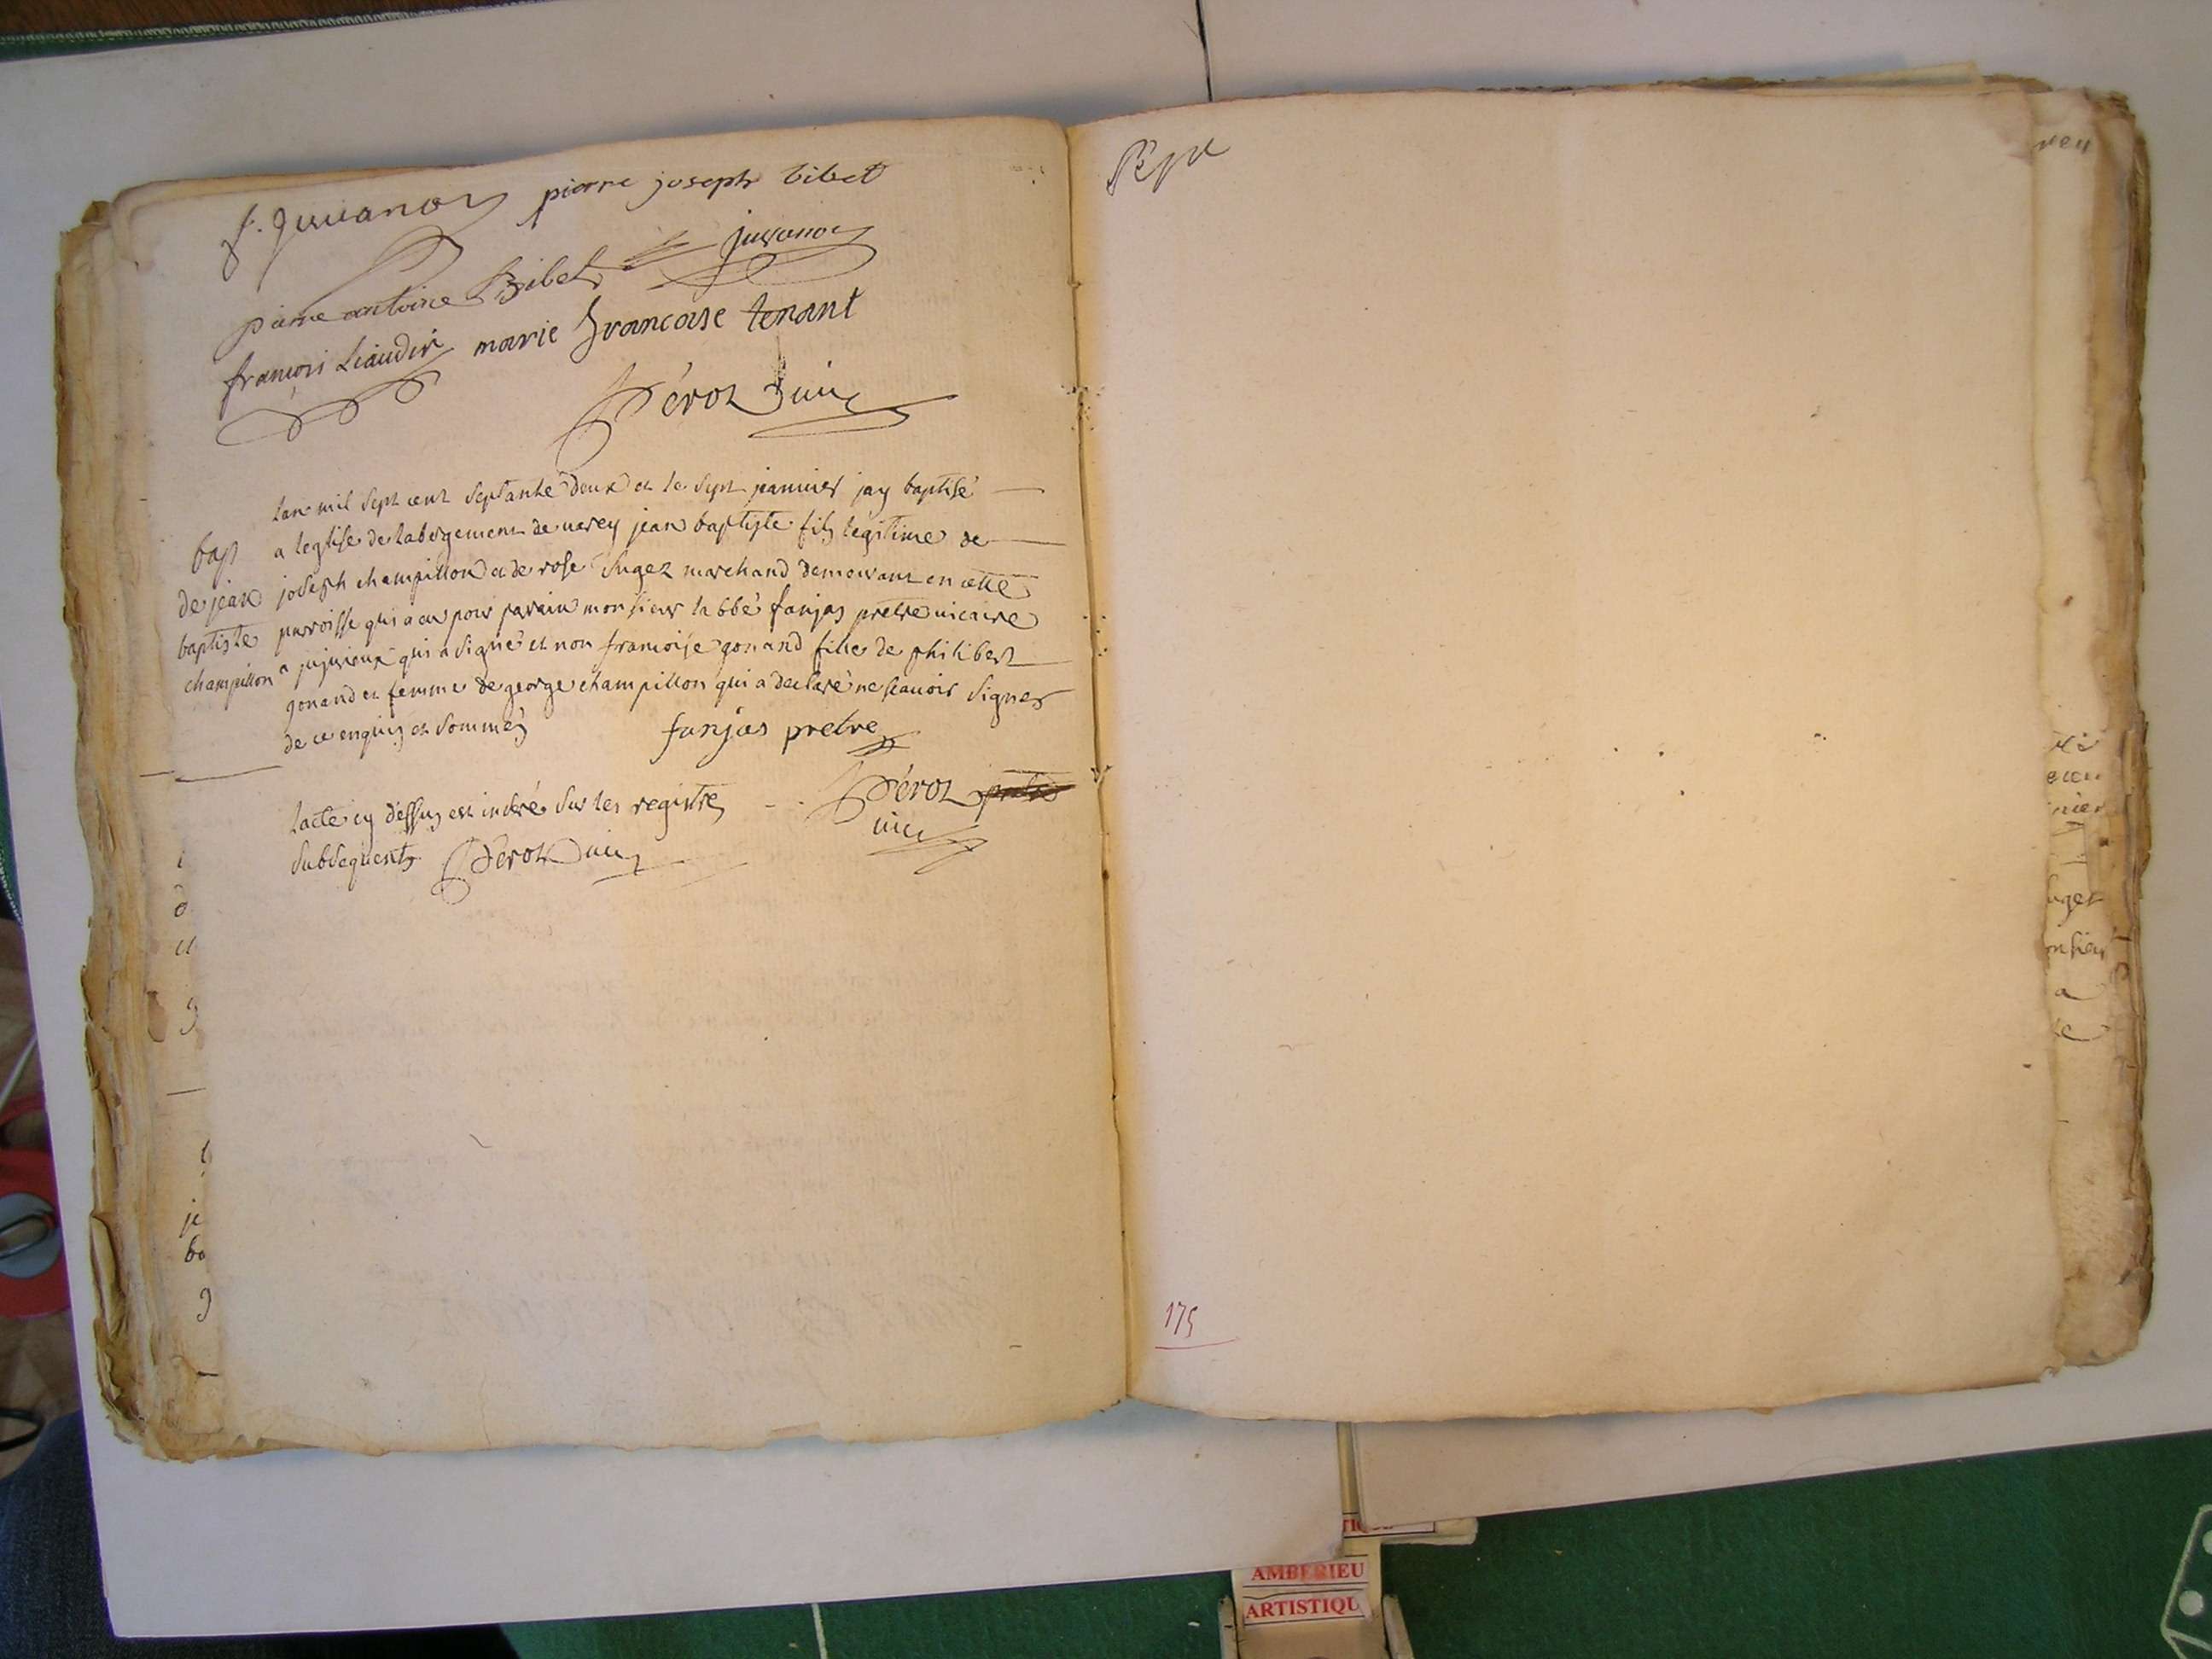 f. Juvanon pierre joseph bibet
pierre antoine Bibet juvanon
francois Liaudin marie francoise tenant
Déroz vic
Lan mil sept cent septante deux et le sept janvier jay baptisé
a leglise de labergement de varey jean baptiste fils legitime de
joseph champillon et de rose Suget marchand demeurant en cette
parroisse qui a eu pour parain monsieur labbé fanjas pretre vicaire
a jujurieux qui a signé et non francoise gonand fille de philibert
gonand et femme de george champillon qui a declaré ne scavoir signer
de ce enquis et sommés
bapt
de jean
baptiste
champillon
fanjas pretre
Déroz
vic
Lacte cy dessus est inseré sur les registres
subsequents Déroz vic
175
nier
uget
onsieur
a
je
ba
AMBERIEU
ARTISTIQU